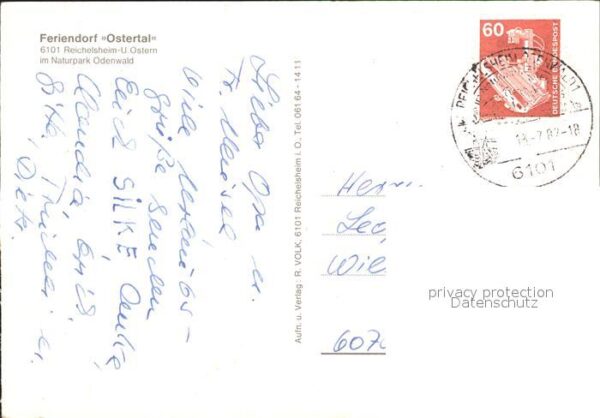 Feriendorf »Ostertal«
6101 Reichelsheim-U. Ostern
im Naturpark Odenwald
Lieber Opa u.
Fr.
Viele Urlaubs-
grüße senden
Euch SILKE
Claudia
Gitta,
Aufn. u. Verlag: R. VOLK, 6101 Reichelsheim i. O., Tel. 061 64 - 14 11
60
DEUTSCHE BUNDESPOST
REICHELSHEIM, ODENWALD 1
13.-7.82-18
6101
Herrn
Leo
Wil
607
privacy protection
Datenschutz